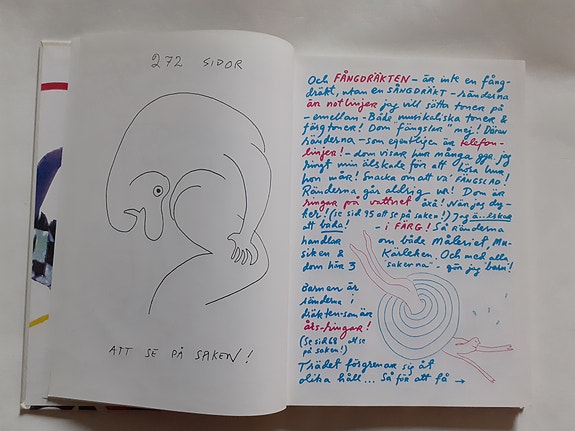 272 SIDOR
ATT SE PÅ SAKEN!
Och FÅNGDRÄKTEN - är inte en fång-
dräkt, utan en SÅNGDRÄKT - ränderna
är notlinjer jag vill sätta toner på
- emellan - Både musikaliska toner &
färgtoner! Dom "fängslar" mej! Därav
händerna - som egentligen är telefon-
linjer! - dom visar hur många ggr jag
ringt min älskade för att höra hur
hon mår! Snacka om att va' FÄNGSLAD!
Ränderna går aldrig ur! Dom är
ringar på vattnet åxå! När jag dy-
ker! (se sid 95 att se på saken!) Jag ä...lskar
att bada! - i FÄRG! Så ränderna
handlar om både Måleriet, Mu-
siken & Kärleken. Och med alla
dom här 3 "sakerna" - gör jag barn!
Barnen är
ränderna i
dräkten - som är
års-ringar!
(Se sid 68 Att se
på saken!)
Trädet förgrenar sig åt
olika håll... Så för att få →